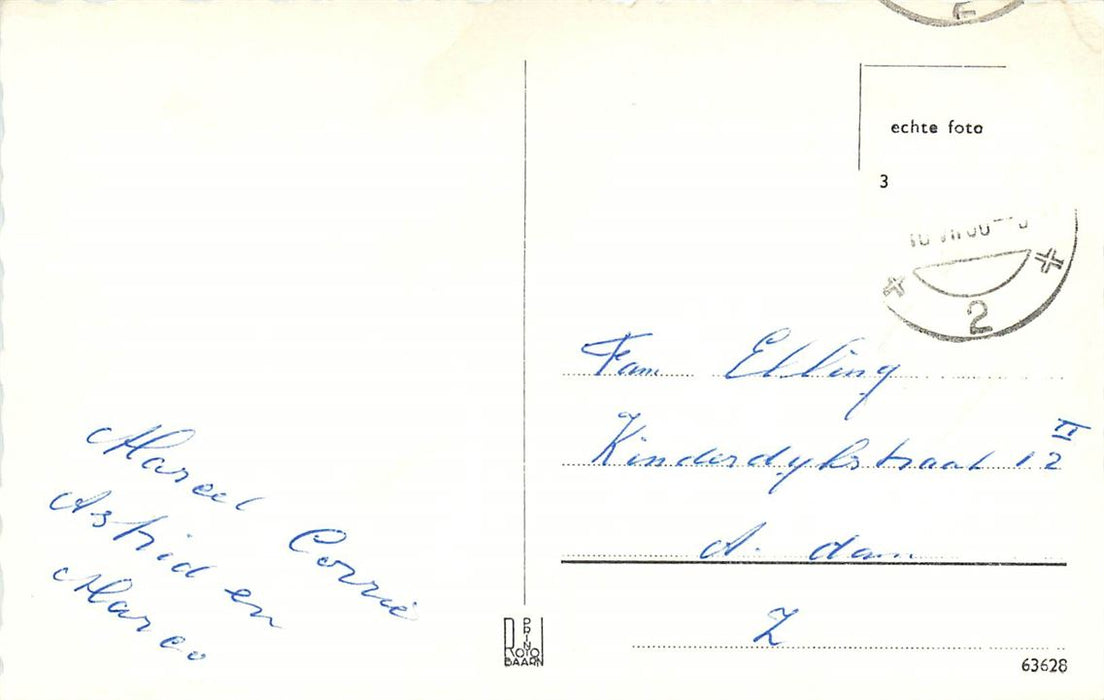 echte foto
3
2
Fam Elling
Kinderdykstraat 12 II
A. dam
Z
Marcel Corrie
Astrid en
Marco
PRINT
ROTO
BAARN
63628